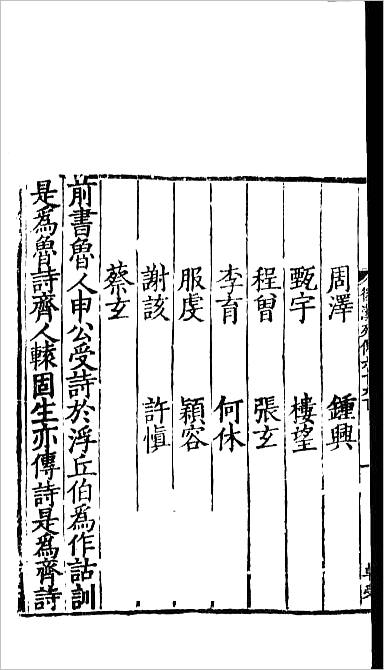 周澤 鍾興
甄宇 樓望
程曾 張玄
李育 何休
服虔 潁容
謝該 許慎
蔡玄
前書魯人申公受詩於浮丘伯爲作詁訓
是爲魯詩齊人轅固生亦傳詩是爲齊詩